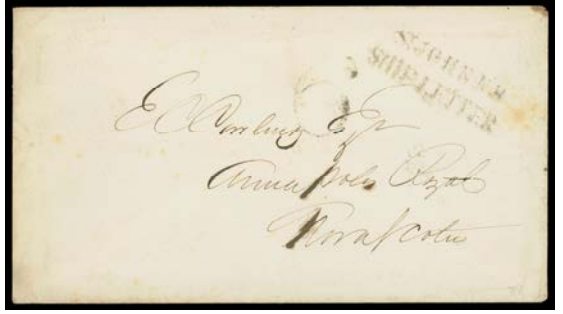 ST JOHN N.B
SHIP LETTER
E C Cowling Esqr
Annapolis Royal
Nova Scotia